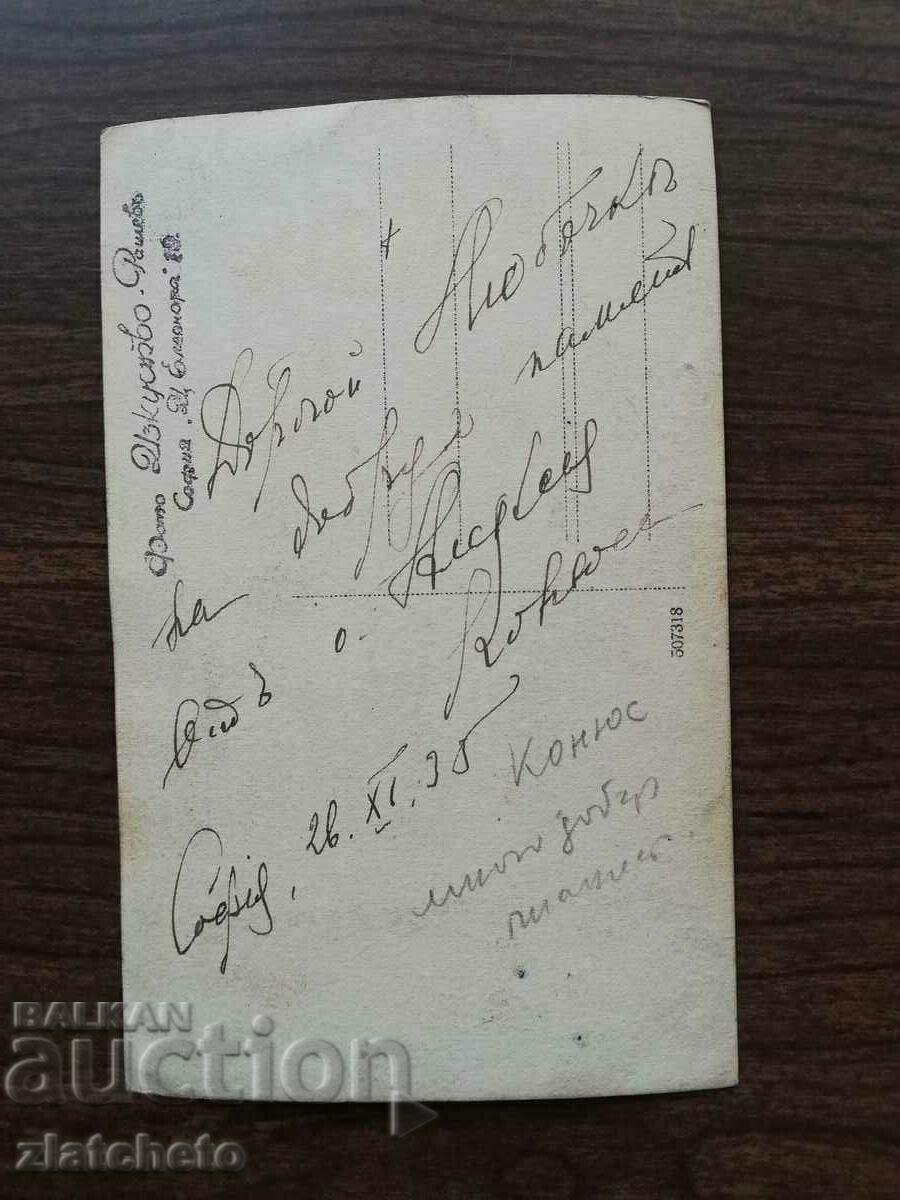 Фото Изкуство - Рашев
София. Ц. Елеонора 10.
Дорогой Любочкѣ
на добрую память
отъ о. Андрей
Конюс
София, 26.XI.35
Конюс
много добър
пианист.
507318
BALKAN
auction
zlatcheto